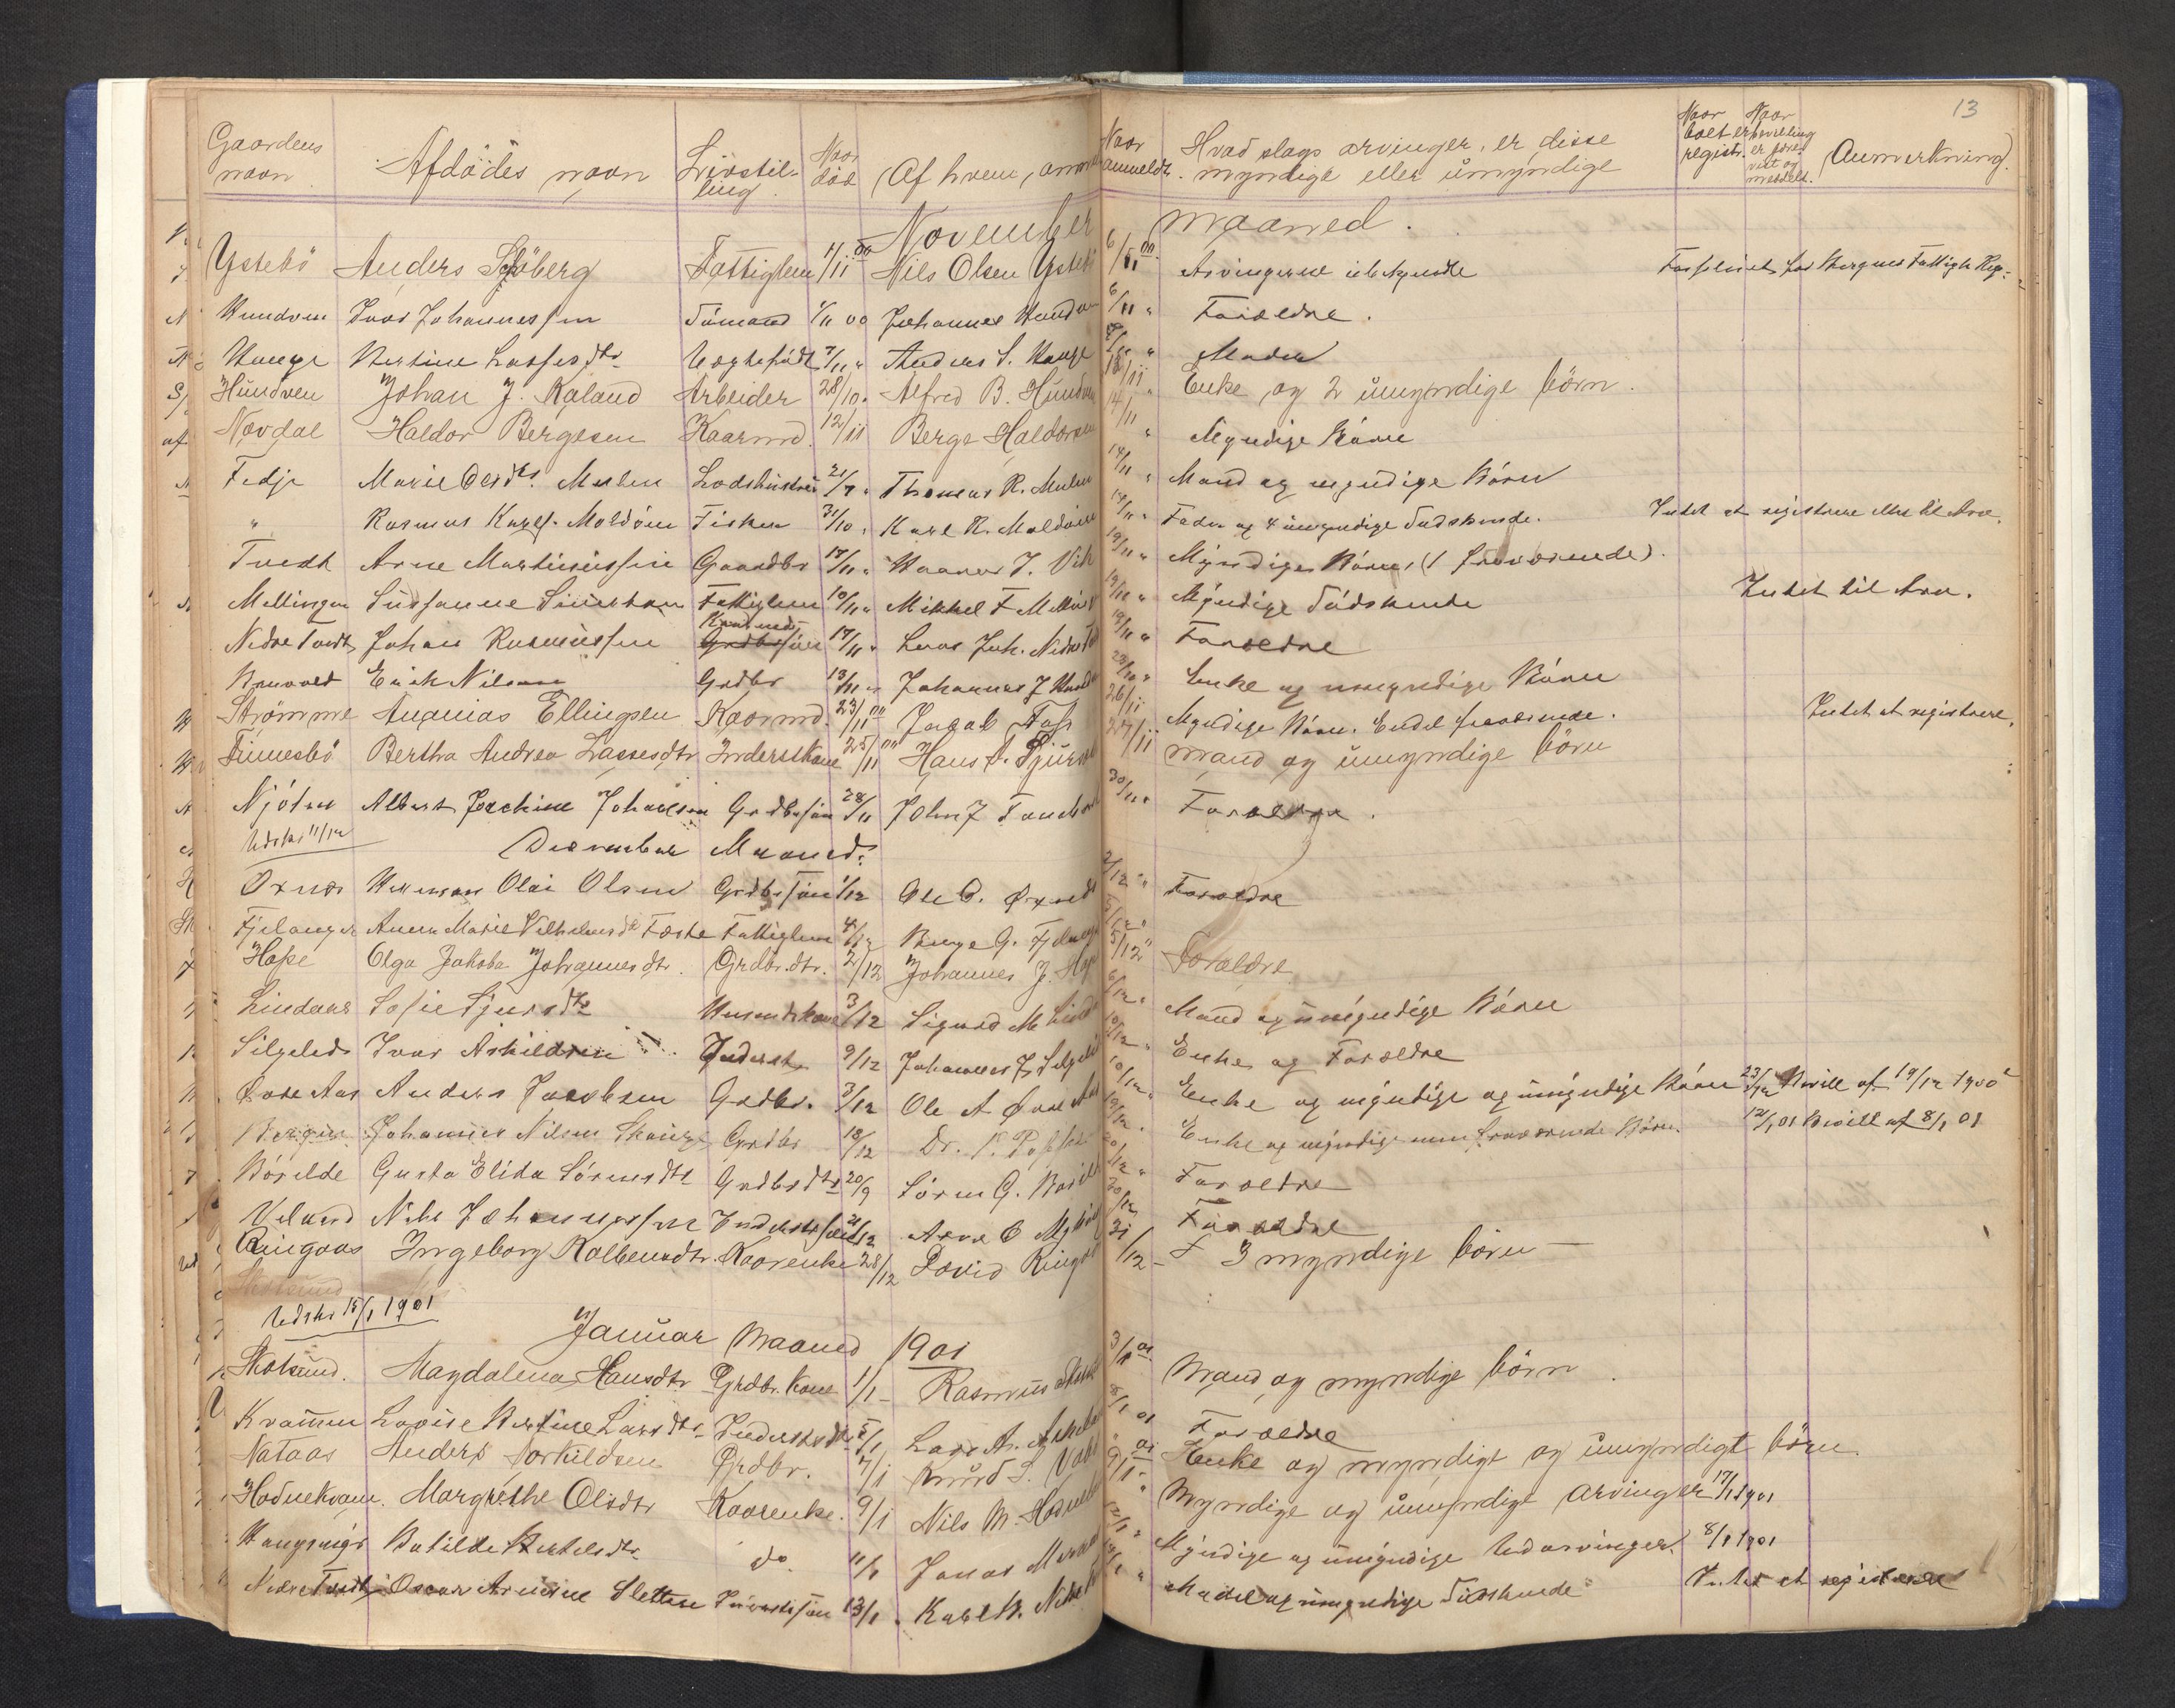 13
Gaardens navn Afdødes navn Livsstilling Naar død Af hvem, Naar anmeldt. Hvad slags arvinger, er disse myndige eller umyndige Naar boet er registr. Naar bevilling er fore vist og meddelt. Anmerkning.
November maaned.
Ystebö Anders Sjöberg Fattiglem 1/11 00 Nils Olsen Ystebö 6/11 00. Arvingerne ubekjendte
Hundven Ivar Johannessen Sömand 1/11 00 Johannes Hundven 6/11 " Forældre.
Hauge Bertine Lassesdtr Uægtefödt 7/11 " Anders S. Hauge Moder
Hundven Johan J. Kaland Arbeider 28/10 " Alfred B. Hundven 12/11 Enke og 2 umyndige börn.
Novdal Haldor Bergesen Kaarmd. 12/11 Berge Haldorsen 14/11 " Myndige Börn
Fedje Marie Olsdtr. Mulen Lodshustru 21/7 " Thomas R. Mulen 14/11 " Mand og myndige Börn
" Rasmus Karls. Moldöen Fisker 31/10 " Karl R. Moldöen 14/11 " Fader og 4 umyndige Sødskende. Intet at registrere eller til Arv.
Tvedt Arne Martinussen Gaardbr 17/11 " Haaver J. Vik 19/11 " Myndige Börn, (1 fraværende).
Mellingen Sussanne Simens Fattiglem 10/11 " Mikkel F Mellingen 19/11 " Myndige Södskende Intet til Arv.
Nedre Tvedt Johan Rasmussen Grdbrsön 17/11 " Lars Joh. Nedre Tv 19/11 " Forældre
Erik Nilsen Grdbr 13/11 " Johannes J 23/11 " Enke og umyndige Börn
Strömme Ananias Ellingsen Kaarmd. 23/11 00 Jacob Foss 26/11 Myndige Börn. Endel fraværende. Intet at registrere.
Fimmesbö Bertha Andrea Lassesdtr Inderstkone 25/11 00 Hans A. 27/11 Mand og umyndige börn
Njöten Albert Joachim Johansen Grdbrsön 28/11 John J 30/11 " Forældre.
Udskr 11/12
December Maaned.
Oxnes Herman Olai Olsen Grdbrsön 1/12 Ole O. Oxnes 2/12 " Forældre
Fjelanger Anna Marie Vilhelmsdtr Fæste Fattiglem 4/12 Berge G. Fjelanger
Hope Olga Jakoba Johannesdtr. Grdbr.dtr. 2/12 Johannes J. Hope 5/12 " Forældre
Lindaas Sofie Sjursdtr Husmdskone 3/12 Sigurd M Lindaas 6/12 " Mand og umyndige Börn
Silgeled Ivar Askildsen Inderst 9/12 Johannes J. Silgeled 10/12 " Enke og Forældre
Övre Aas Anders Jacobsen Grdbr. 3/12 Ole A Övre Aas 10/12 " Enke og myndige og umyndige Börn 23/12 Bevill af 19/12 1900
Bergen Johannes Nilsen Skauge Grdbr 18/12 Dr. 19/12 " Enke og myndige men fraværende Börn. 12/1 01 Bevill af 8/1 01
Börilde Gusta Elida Sörensdtr Grdbrdtr 20/9 Sören G. Börilde 20/12 " Forældre
Veland Nils Johannessen Inderstsön 21/12 Arne O 30/12 Forældre
Ringaas Ingeborg Kolbensdtr. Kaarenke 28/12 David Ringaas 31/12 - 3 myndige börn
Udskr 15/1 1901
Januar Maaned 1901
Skotsund. Magdalena Hansdtr Grdbr. kone 1/1 - Rasmus Skotsund 3/1 01. Mand og myndige börn
Kvammen Lovise Bertine Larsdtr. Inderstsdtr 5/1 Lars A. 8/1 01 Forældre
Nataas Anders Torkildsen Grdbr. 7/1 Knud S. 01 Enke og myndige og umyndigt börn.
Hodnekvam. Margrethe Olsdtr Kaarenke. 9/1 Nils M. 9/1 " Myndige og umyndige arvinger 17/1 1901
Botilde Bertelsdtr. do 11/1 Jonas 12/1 " Myndige og umyndige Udarvinger. 8/1 1901
Nedre Tvedt Oscar Slettene 13/1 " Karl B. Nedre Moder og umyndige Södskende Intet at registrere